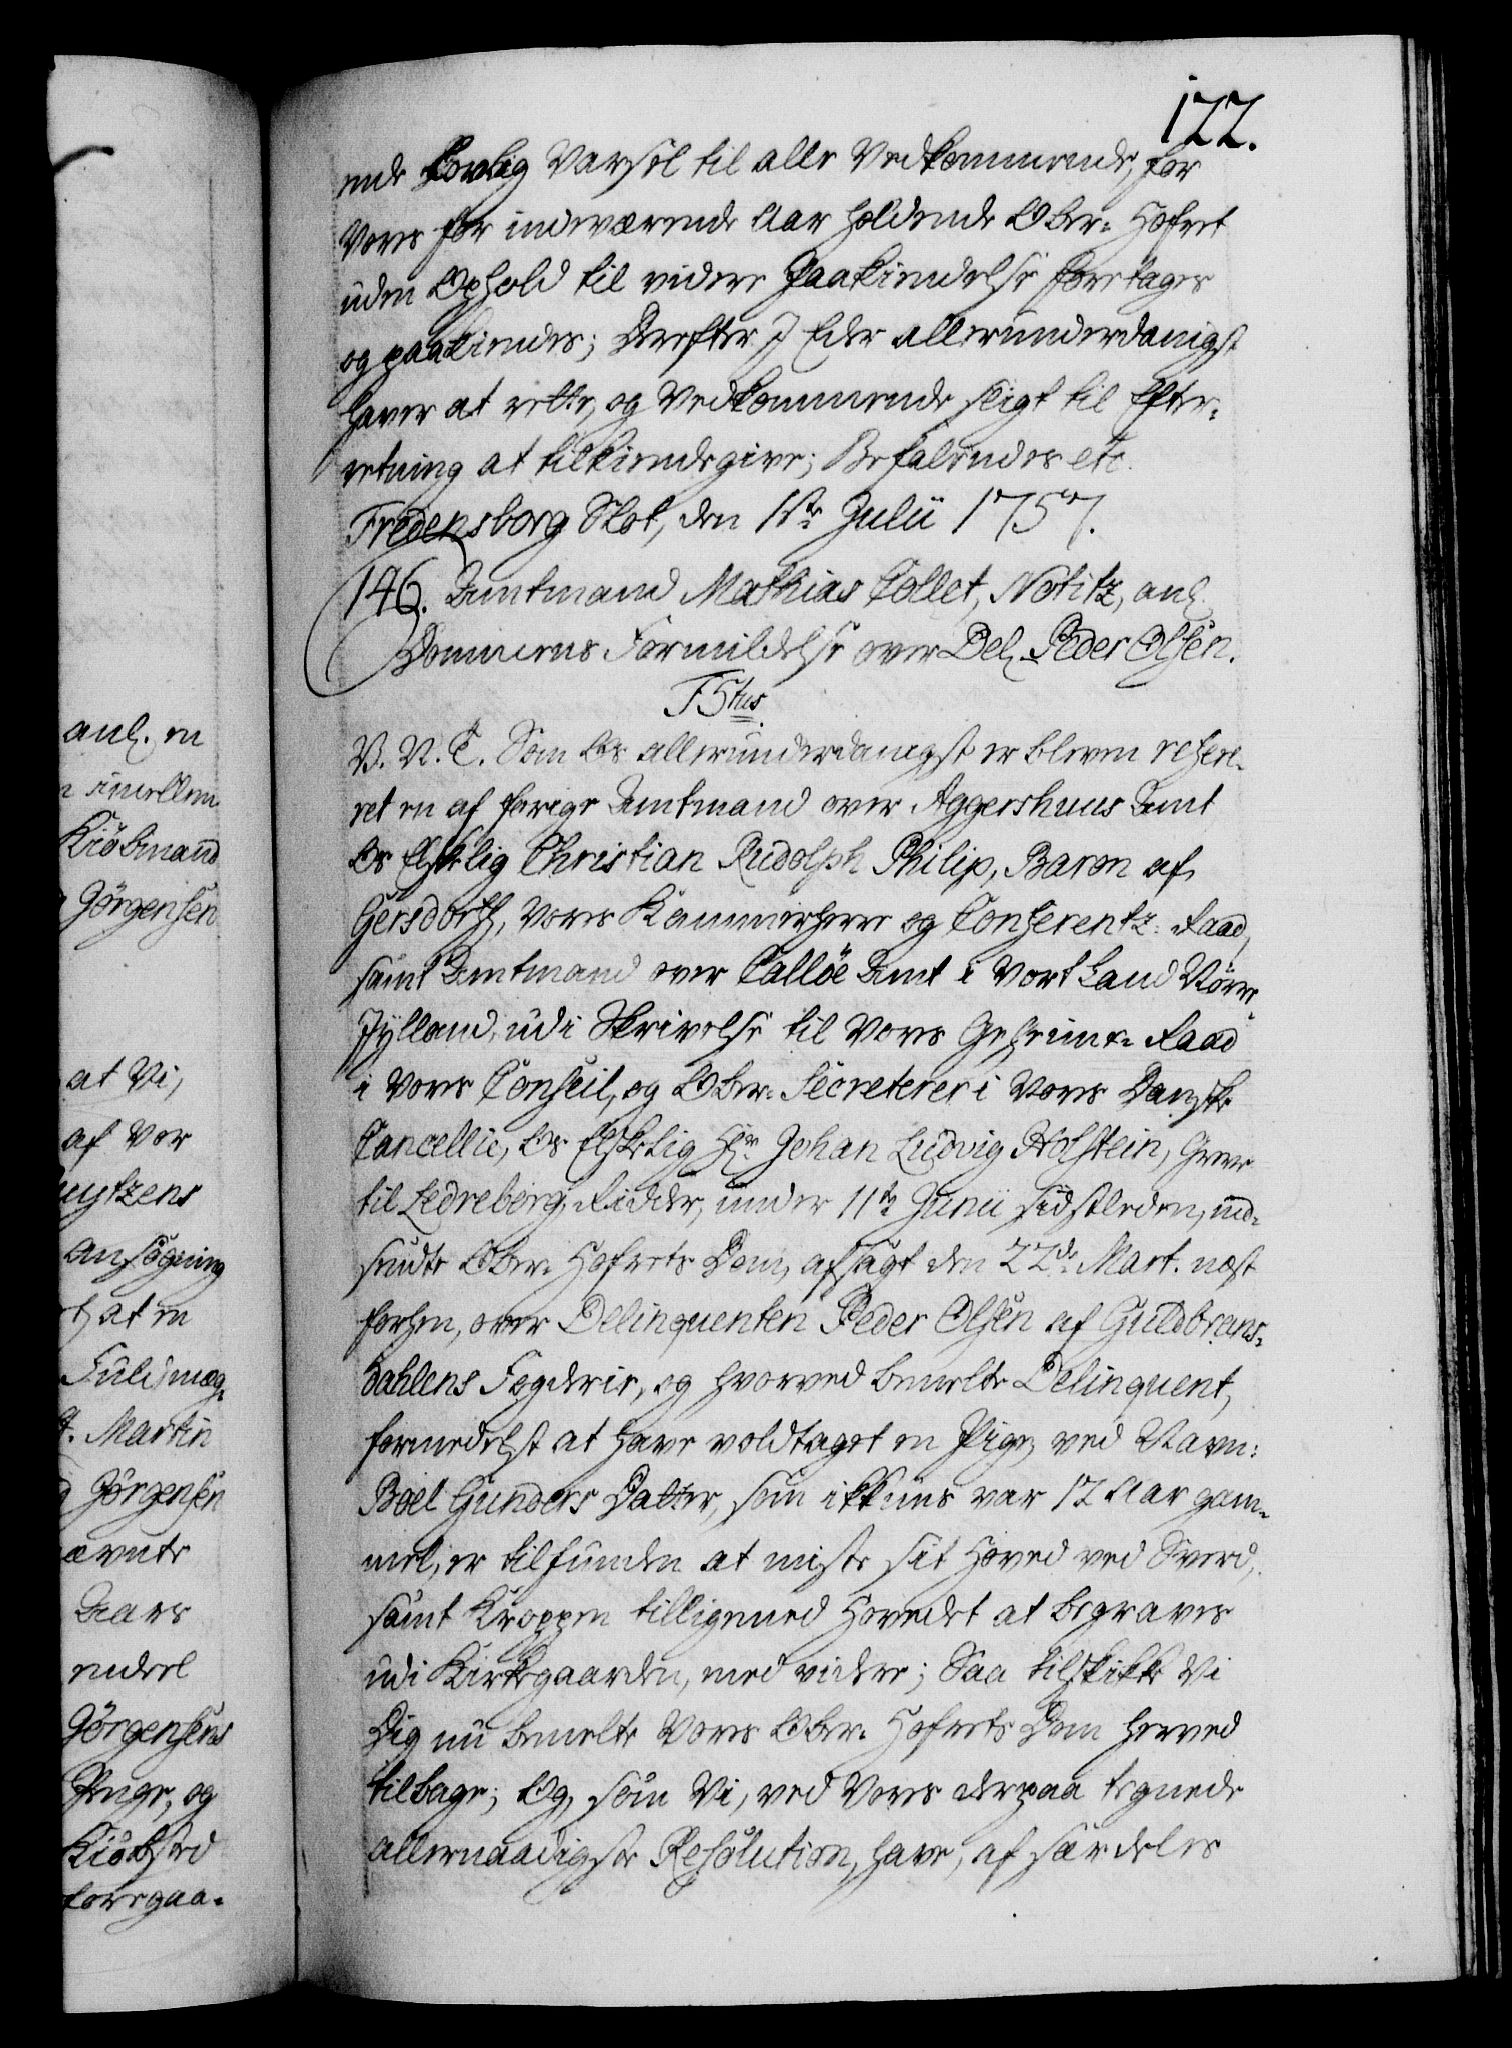 122.
ende Lovlig Varsel til alle Vedkommende, for
Vores for indeværende Aar holdende Ober-Hofret
uden Ophold til videre Paakiendelse foretages
og paakiendes; Derefter I Eder allerunderdanigst
haver at rette, og Vedkommende sligt til Efter-
retning at tilkiendegive; Befalendes etc.
Fredensborg Slot, den 1ste Julii 1757.
146. Amtmand Mathias Collet, Notitz, anl.
Dommens Formildelse over Del. Peder Olsen.
F5tus
V. N. T. Som Os allerunderdanigst er bleven refere-
ret en af forrige Amtmand over Aggershuus Amt
Os Elskelig Christian Rudolph Philip, Baron af
Gersdorff, Vores Kammerherre og Conferentz-Raad,
samt Amtmand over Calløe Amt i Vort Land Nørre-
Jylland, udi Skrivelse til Vores Geheime-Raad
i Vores Conseil, og Ober-Secreterer i Vores Danske
Cancellie, Os Elskelig Hr. Johan Ludvig Holstein, Greve
til Ledreborg, Ridder, under 11te Junii sidstleden, ind-
sendte Ober-Hofrets Dom, afsagt den 22de Mart. næst
forhen, over Delinquenten Peder Olsen af Guldbrans-
dahlens Fogderie, og hvorved bemelte Delinquent,
formedelst at have voldtaget en Pige, ved Navn:
Boel Gunders Datter, som ikkuns var 12 Aar gam-
mel, er tilfunden at miste sit Hoved ved Sverd,
samt Kroppen tilligemed Hovedet at begraves
udi Kirkegaarden, med videre; Saa tilskikke Vi
Dig nu bemelte Vores Ober-Hofrets Dom herved
tilbage; Og, som Vi, ved Vores derpaa tegnede
allernaadigste Resolution, have, af særdeles
anl. en
imellem
Kiøbmand
Jørgensen
at Vi,
af Vor
uytzens
ansøgning
at en
Fuldmæg-
Martin
Jørgensen
ævnte
Aars
endeel
Jørgensens
Penge, og
Kiøbsted
foregaa-